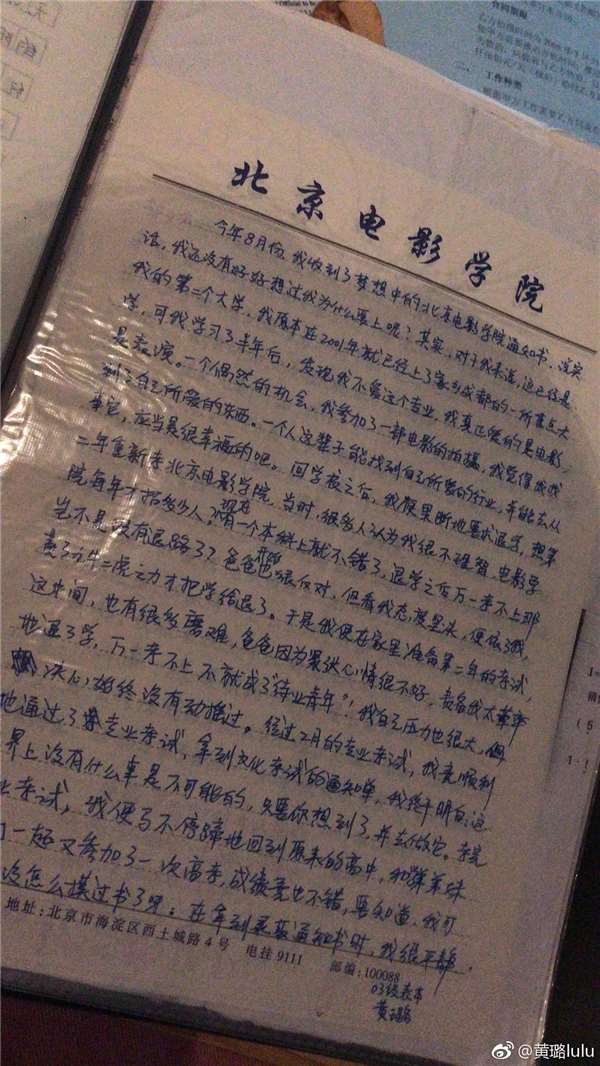 北京电影学院
今年8月份,我收到了梦想中的北京电影学院通知书,说实
话,我还没有好好想过我为什么要上呢?其实,对于我来说,这已经是
我的第二个大学,我原本在2001年就已经上了家乡成都的一所重点大
学,可我学习了半年后,发现我不爱这个专业,我真正爱的是电影,
是表演。一个偶然的机会,我参加了一部电影的拍摄,我觉得我找
到了自己所爱的东西。一个人这辈子能找到自己所爱的行业,并能去从
事它,应当是很幸福的吧。回学校之后,我便果断地要求退学,想第
二年重新考北京电影学院。当时,很多人认为我很不理智,电影学
院每年才招多少人?现在有一个本科上就不错了,退学之后万一考不上那
岂不是没有退路了?爸爸开始也很反对,但看我态度坚决,便依了我,
费了九牛二虎之力才把学给退了。于是我便在家里准备第二年的考试,
这中间,也有很多磨难,爸爸因为 心情很不好,责备我太草率
地退了学,万一考不上不就成了“待业青年”!我自己压力也很大,但
决心始终没有动摇过。经过2月的专业考试,我竟顺利
地通过了 专业考试,拿到文化考试的通知单,我终于明白,这
界上没有什么事是不可能的,只要你想到了,并去做它。考完
业考试,我便马不停蹄地回到原来的高中,和弟弟妹
们一起又参加了一次高考,成绩竟也不错,要知道,我可
没怎么摸过书了呀。在拿到录取通知书时,我很平静.
地址:北京市海淀区西土城路4号 电挂9111 邮编:100088
03级表本
黄璐
二、工作种类
@黄璐lulu